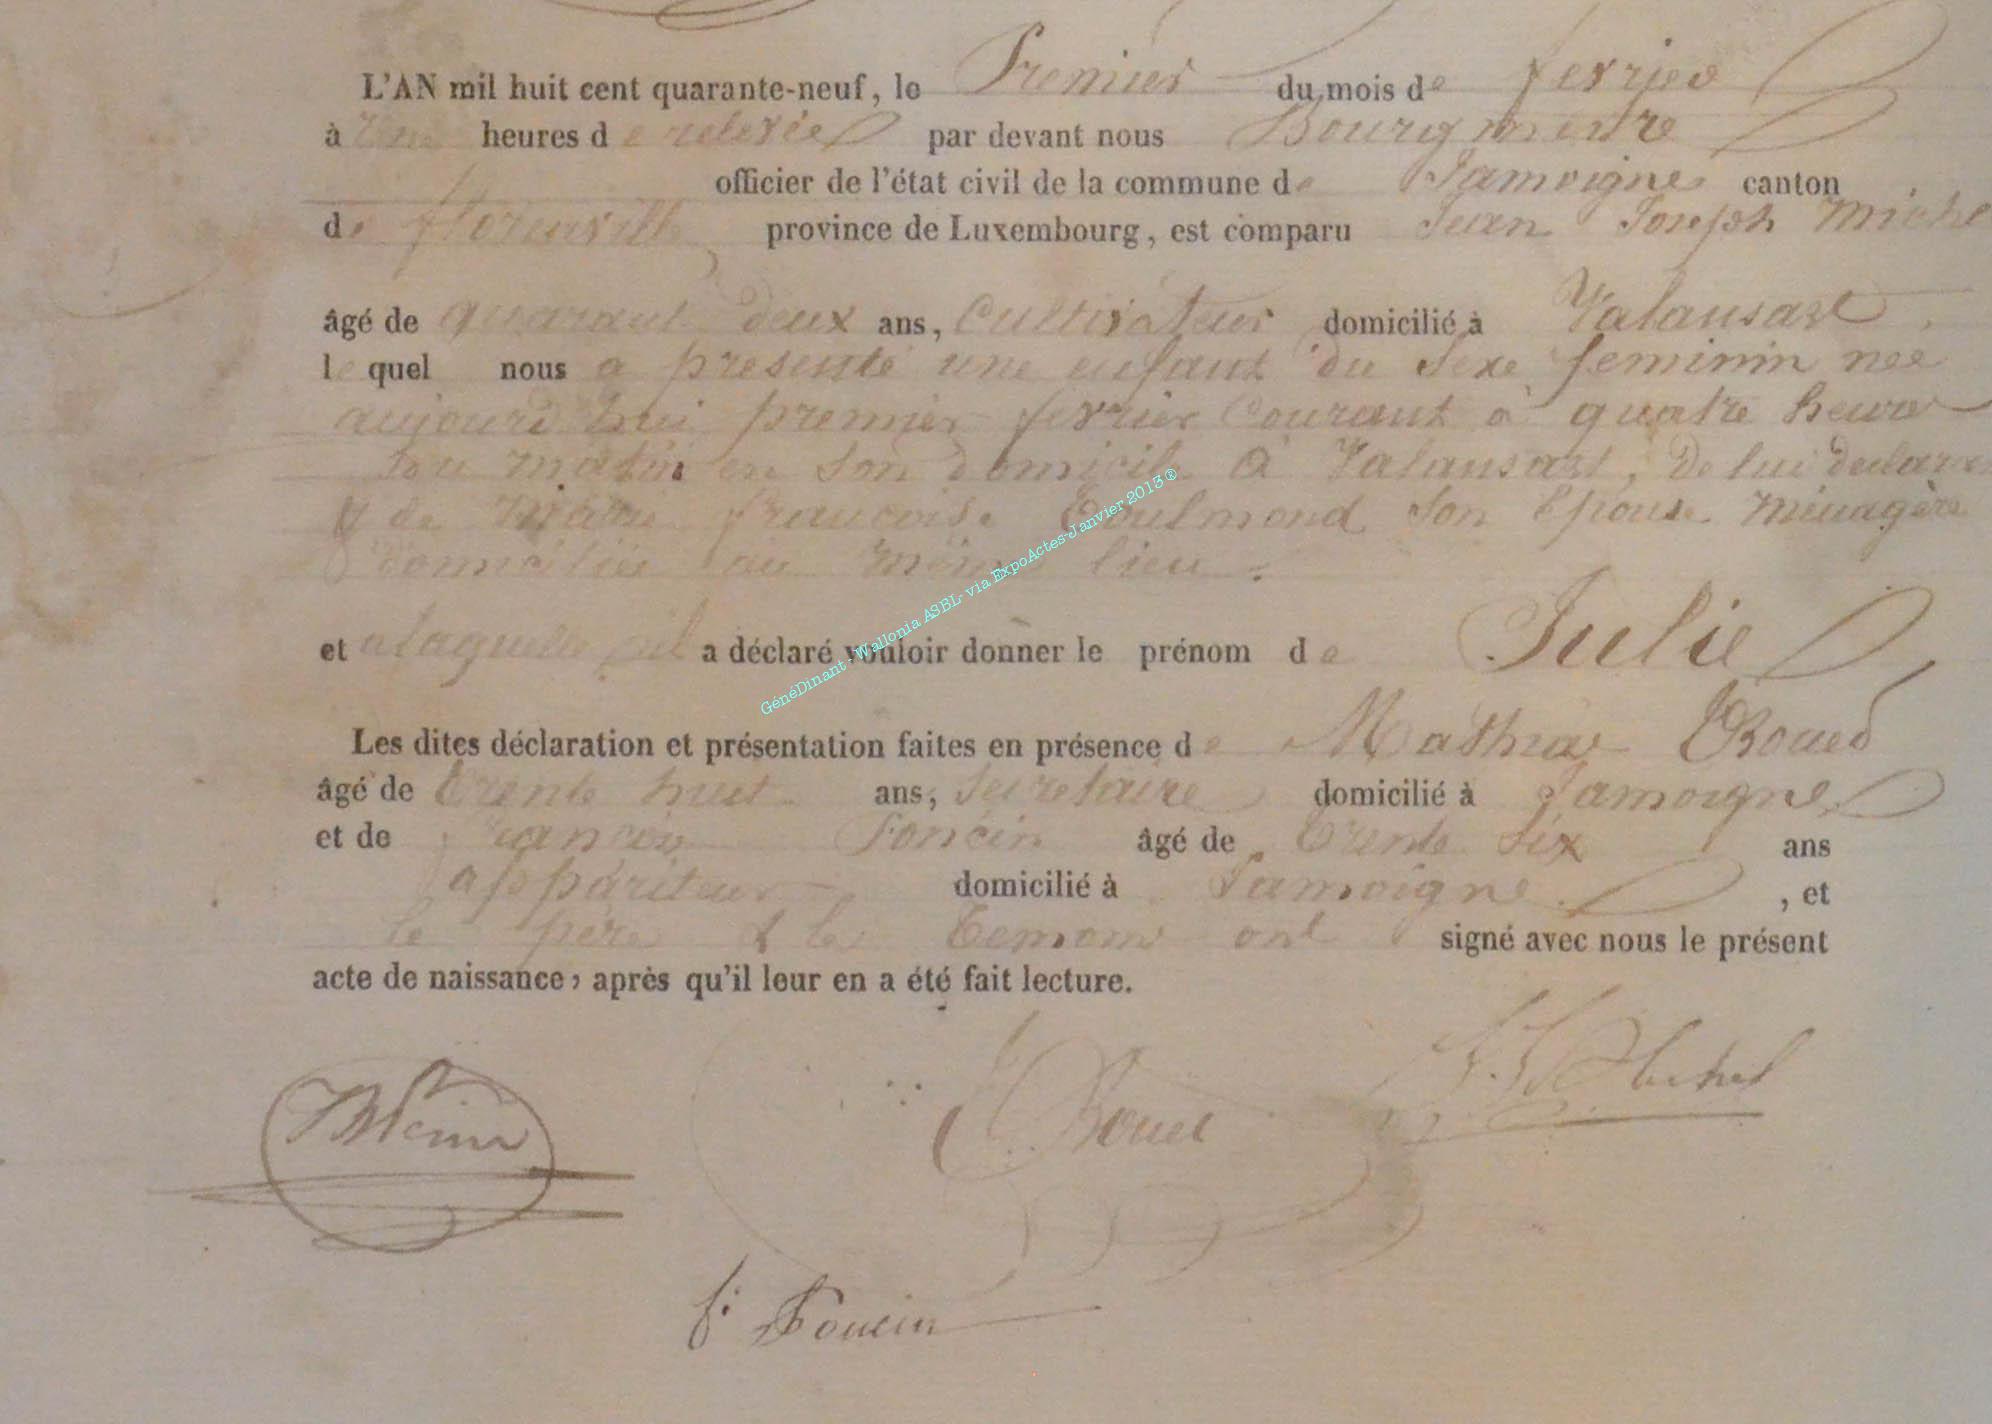 L'AN mil huit cent quarante-neuf, le Premier du mois de fevrier
à Une heures de relevée par devant nous Bourgmestre
officier de l'état civil de la commune de Jamoigne canton
de florenville province de Luxembourg, est comparu Jean Joseph Michel
âgé de quarante deux ans, Cultivateur domicilié à Valansart
lequel nous a presenté une enfant du Sexe feminin née
aujourd'hui premier fevrier Courant à quatre heures
du matin en son domicile à Valansart, De lui declarant
& de Marie françoise Toulmond Son Epouse Ménagère
domiciliée au même lieu.
et a laquelle il a déclaré vouloir donner le prénom de Julie
Les dites déclaration et présentation faites en présence de Mathieu Boued
âgé de trente huit ans, Secretaire domicilié à Jamoigne
et de françois Poncin âgé de trente Six ans
appariteur domicilié à Jamoigne, et
le père & les temoins ont signé avec nous le présent
acte de naissance, après qu'il leur en a été fait lecture.
J. J. Michel
f: Poncin
GénéDinant - Wallonia ASBL- via ExpoActes-Janvier 2013®